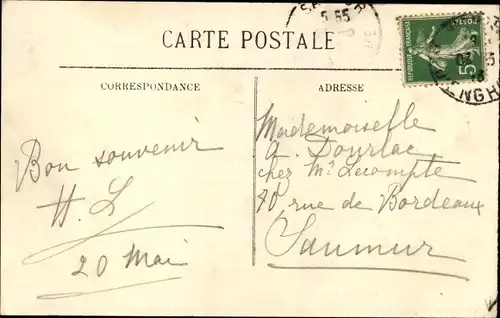 CARTE POSTALE
CORRESPONDANCE
ADRESSE
REPUBLIQUE FRANÇAISE
POSTES
5
Bon souvenir
H. L
20 Mai
Mademoiselle
a. Dourlac
chez Mr Lecompte
70, rue de Bordeaux
Saumur